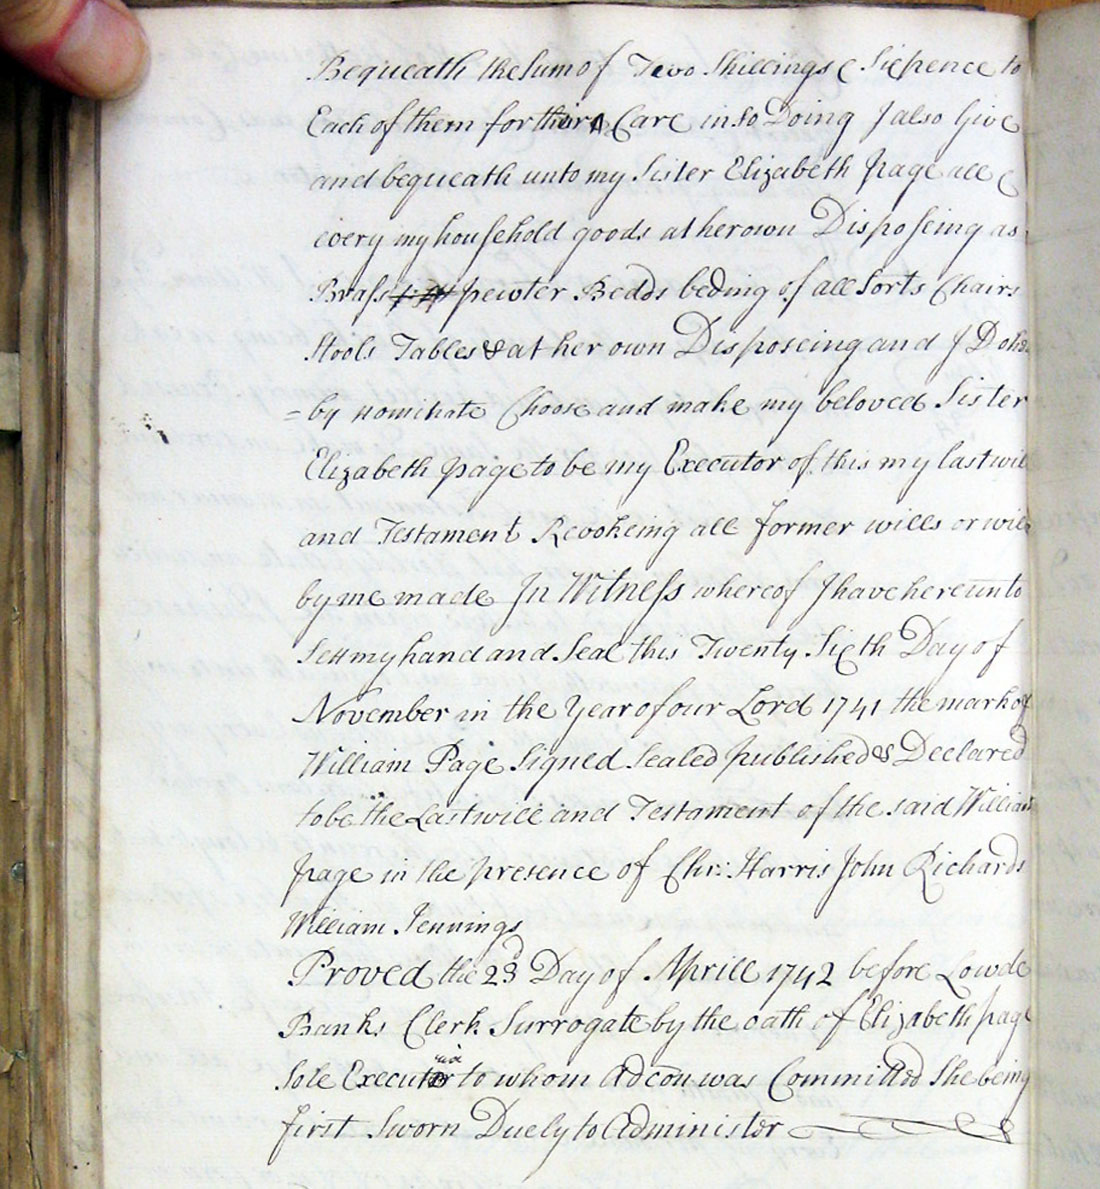 Bequeath the Sum of Two Shillings & Sixpence to
Each of them for their Care in so Doing I also Give
and bequeath unto my Sister Elizabeth Page all &
every my household goods at her own Disposeing as
Brass pewter Bedds beding of all Sorts Chairs
Stools Tables & at her own Disposeing and I Do here
=by nominate Choose and make my beloved Sister
Elizabeth Page to be my Executor of this my last will
and Testament Revokeing all former wills or will
by me made In Witness whereof I have hereunto
Sett my hand and Seal this Twenty Sixth Day of
November in the Year of our Lord 1741 the mark of
William Page Signed Sealed published & Declared
to be the Last will and Testament of the said William
Page in the presence of Chr: Harris John Richards
William Jennings
Proved the 23d Day of Aprill 1742 before Lowde
Banks Clerk Surrogate by the oath of Elizabeth page
Sole Executrix to whom Adcon was Committed She being
first Sworn Duely to Administer